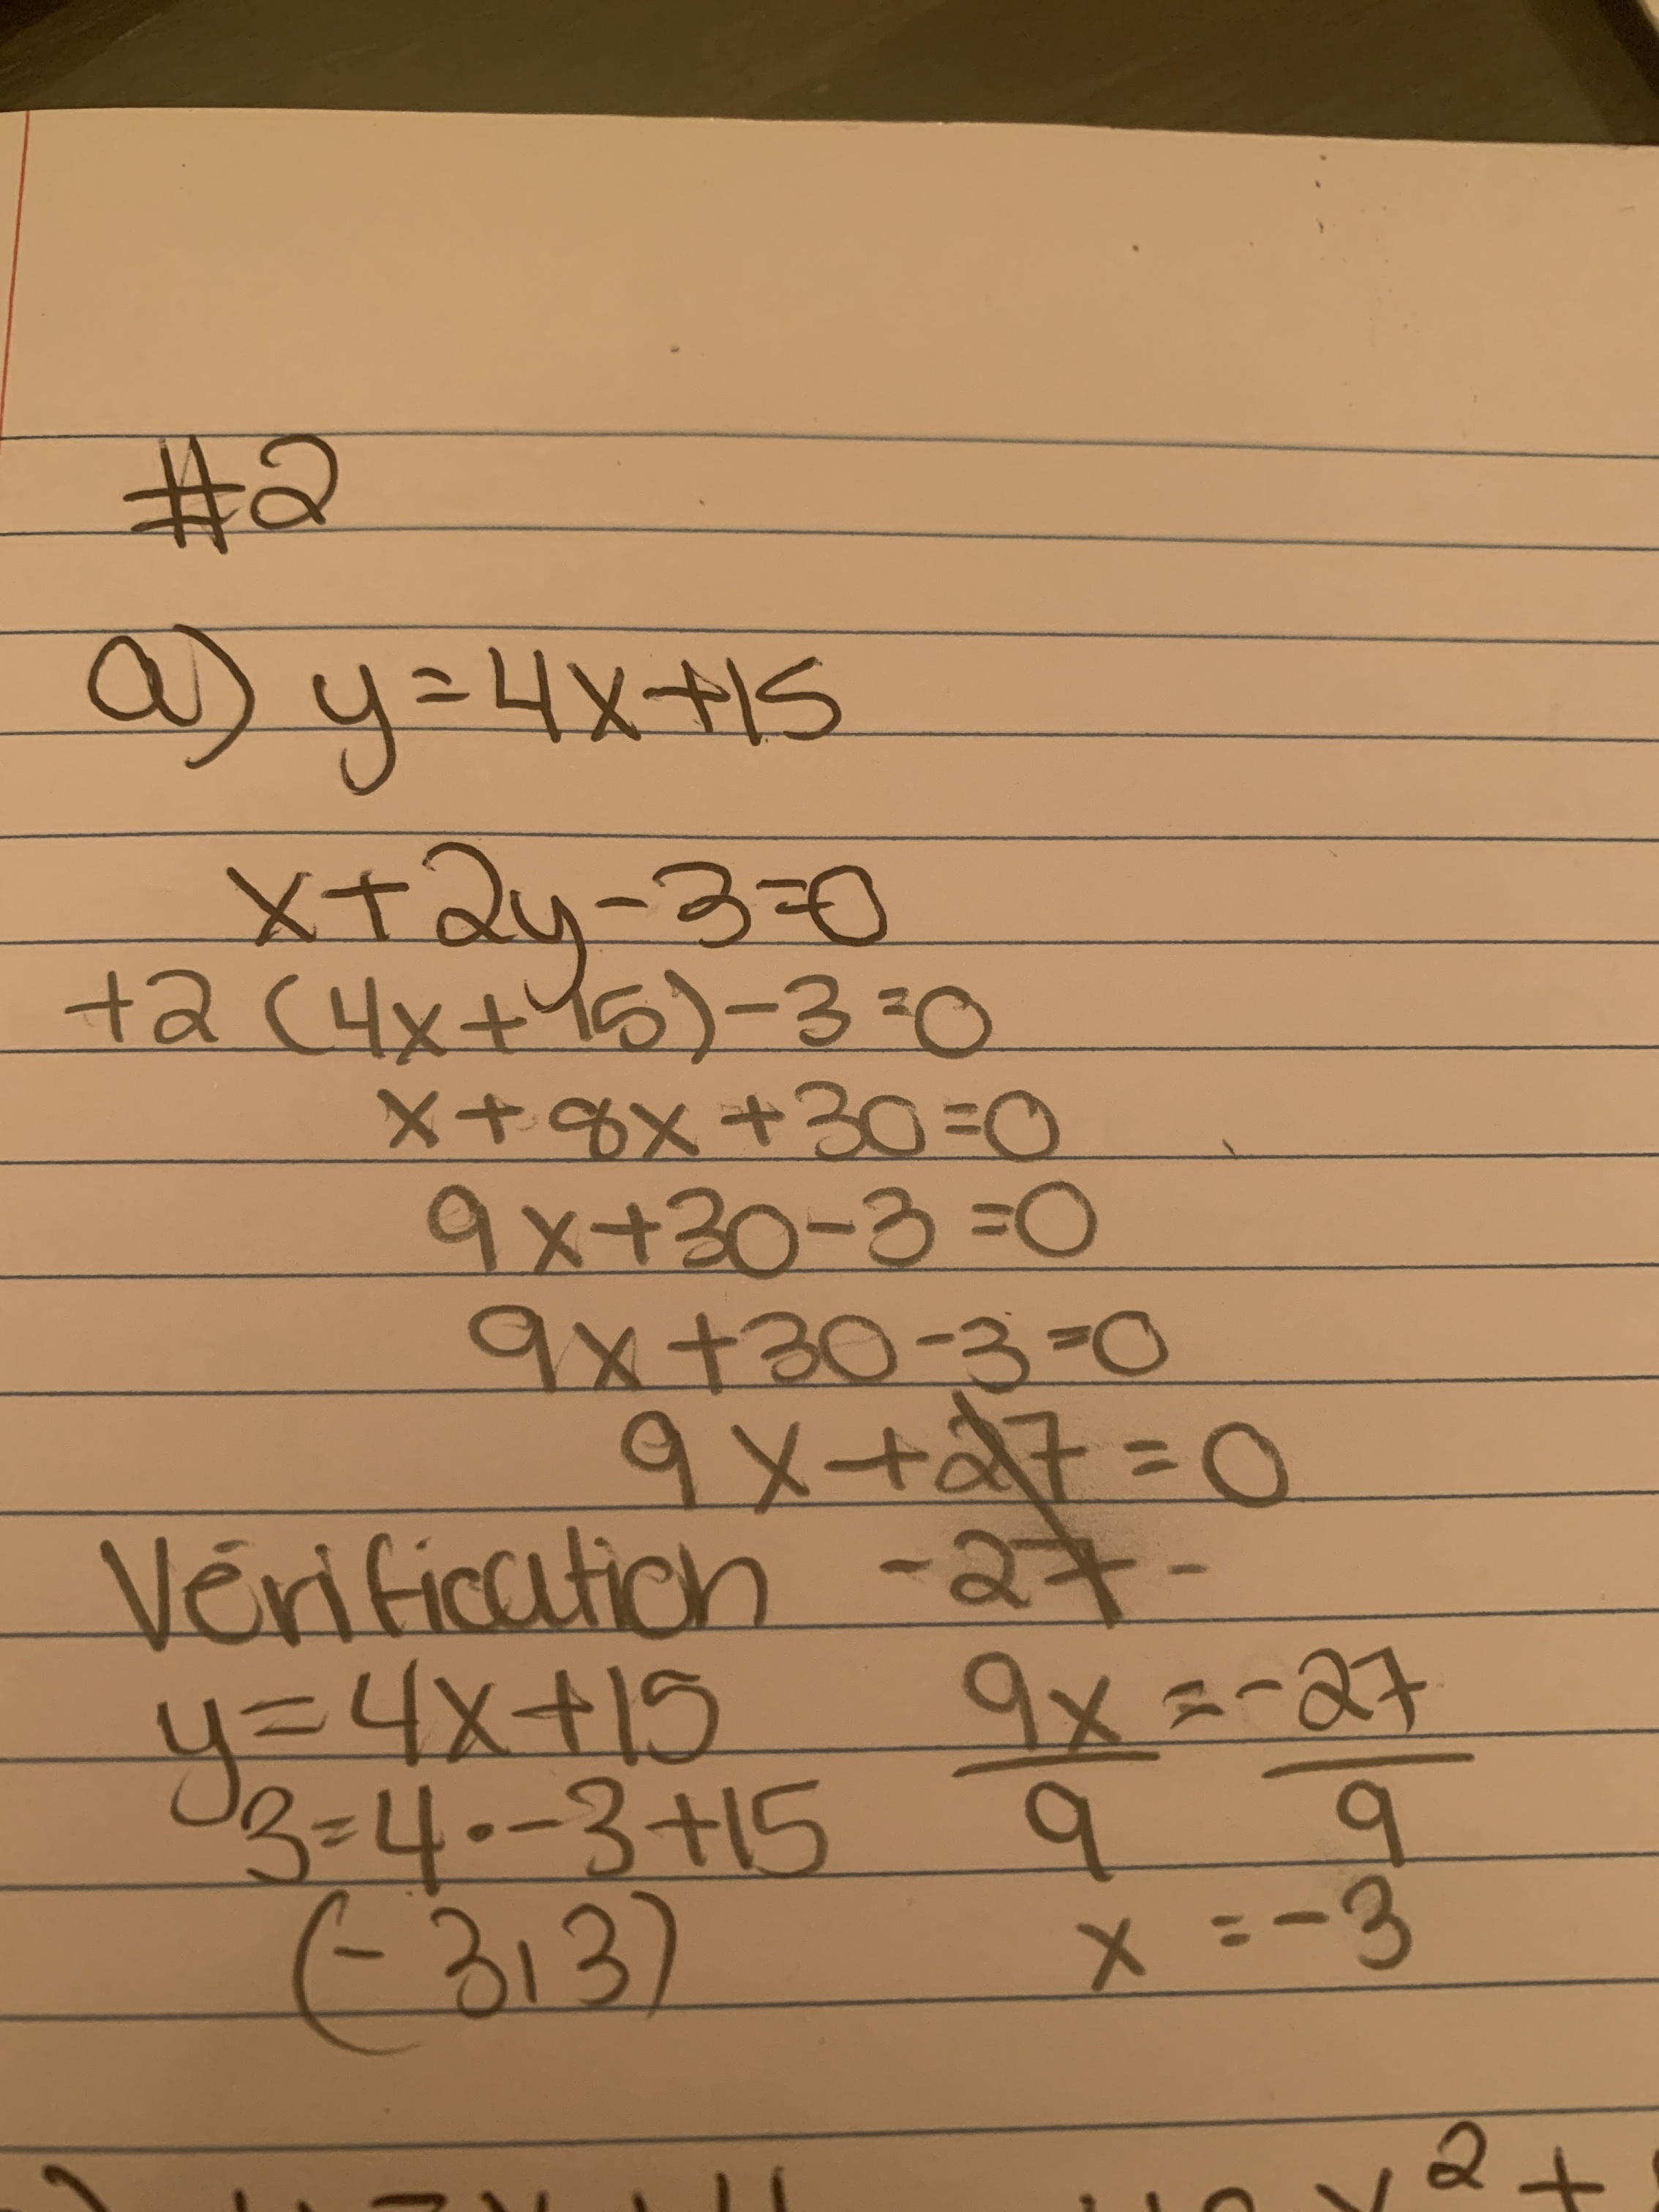 #2
a) y=4x+15
x+2y-3=0
+2 (4x+15)-3=0
x+8x+30=0
9x+30-3=0
9x+30-3=0
9x+27=0
-27 -
9x = -27
9 9
x = -3
Vérification
y=4x+15
3=4·-3+15
(-3,3)